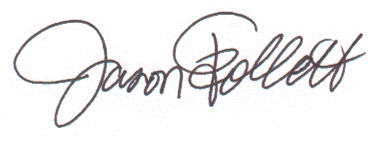 Jason Follett